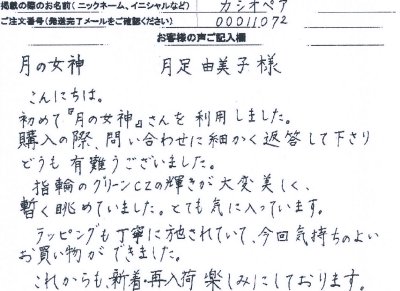 掲載の際のお名前(ニックネーム、イニシャルなど) カシオペア
ご注文番号(発送完了メールをご確認ください) 00011072
お客様の声ご記入欄
月の女神 月足 由美子 様
こんにちは。
初めて『月の女神』さんを利用しました。
購入の際、問い合わせに細かく返答して下さり
どうも有難うございました。
指輪のグリーンCZの輝きが大変美しく、
暫く眺めていました。とても気に入っています。
ラッピングも丁寧に施されていて、今回気持ちのよい
お買い物ができました。
これからも、新着・再入荷楽しみにしております。